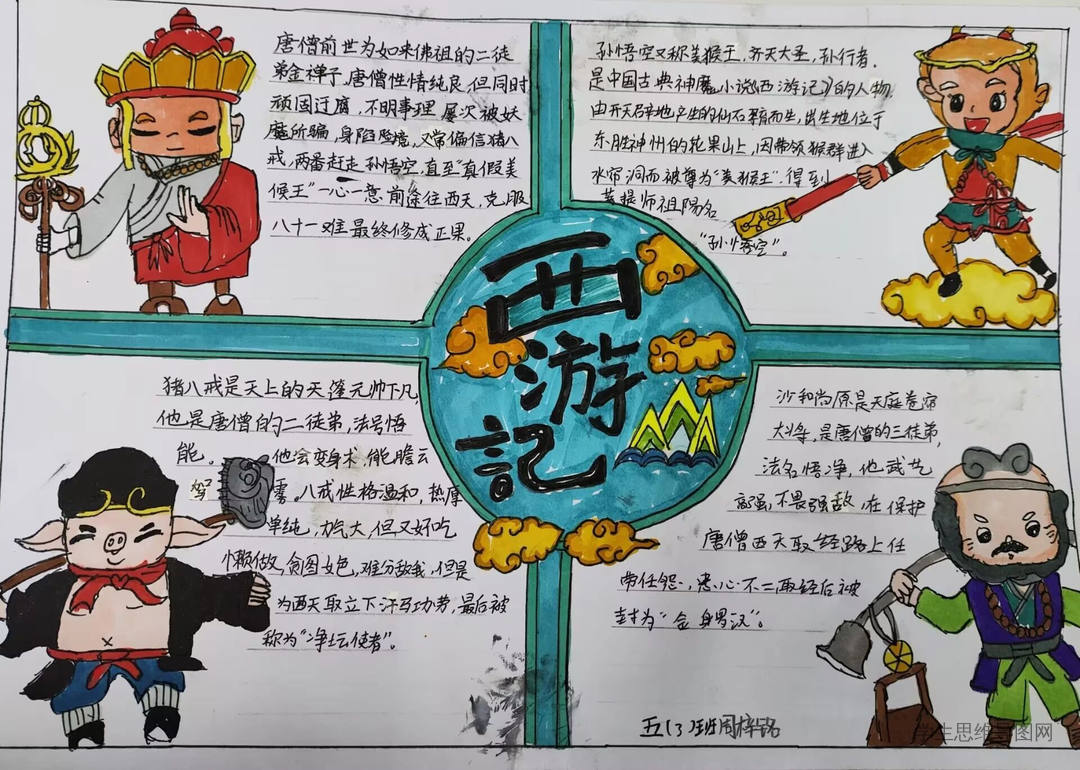 唐僧前世为如来佛祖的二徒
弟金禅子,唐僧性情纯良,但同时
顽固迂腐,不明事理,屡次被妖
魔所骗,身陷险境,又常偏信猪八
戒,两番赶走孙悟空,直至"真假美
候王"一心一意前途往西天,克服
八十一难最终修成正果。
孙悟空又称美猴王,齐天大圣,孙行者.
是中国古典神魔小说《西游记》的人物
由开天辟地产生的仙石孕育而生,出生地位于
东胜神州的花果山上,因带领猴群进入
水帘洞而被尊为"美猴王".得到
菩提师祖赐名
"孙悟空"。
西
游
記
猪八戒是天上的天蓬元帅下凡,
他是唐僧的二徒弟,法号悟
能。他会变身术,能腾云
驾雾。八戒性格温和,热厚
单纯,力气大,但又好吃
懒做,贪图女色,难分敌我,但是
为西天取立下汗马功劳,最后被
称为"净坛使者"。
沙和尚原是天庭卷帘
大将,是唐僧的三徒弟,
法名悟净,他武艺
高强,不畏强敌,在保护
唐僧西天取经路上任
劳任怨,忠心不二取经后被
封为"金身罗汉"。
五(3)班周梓铭
学生思维导图网